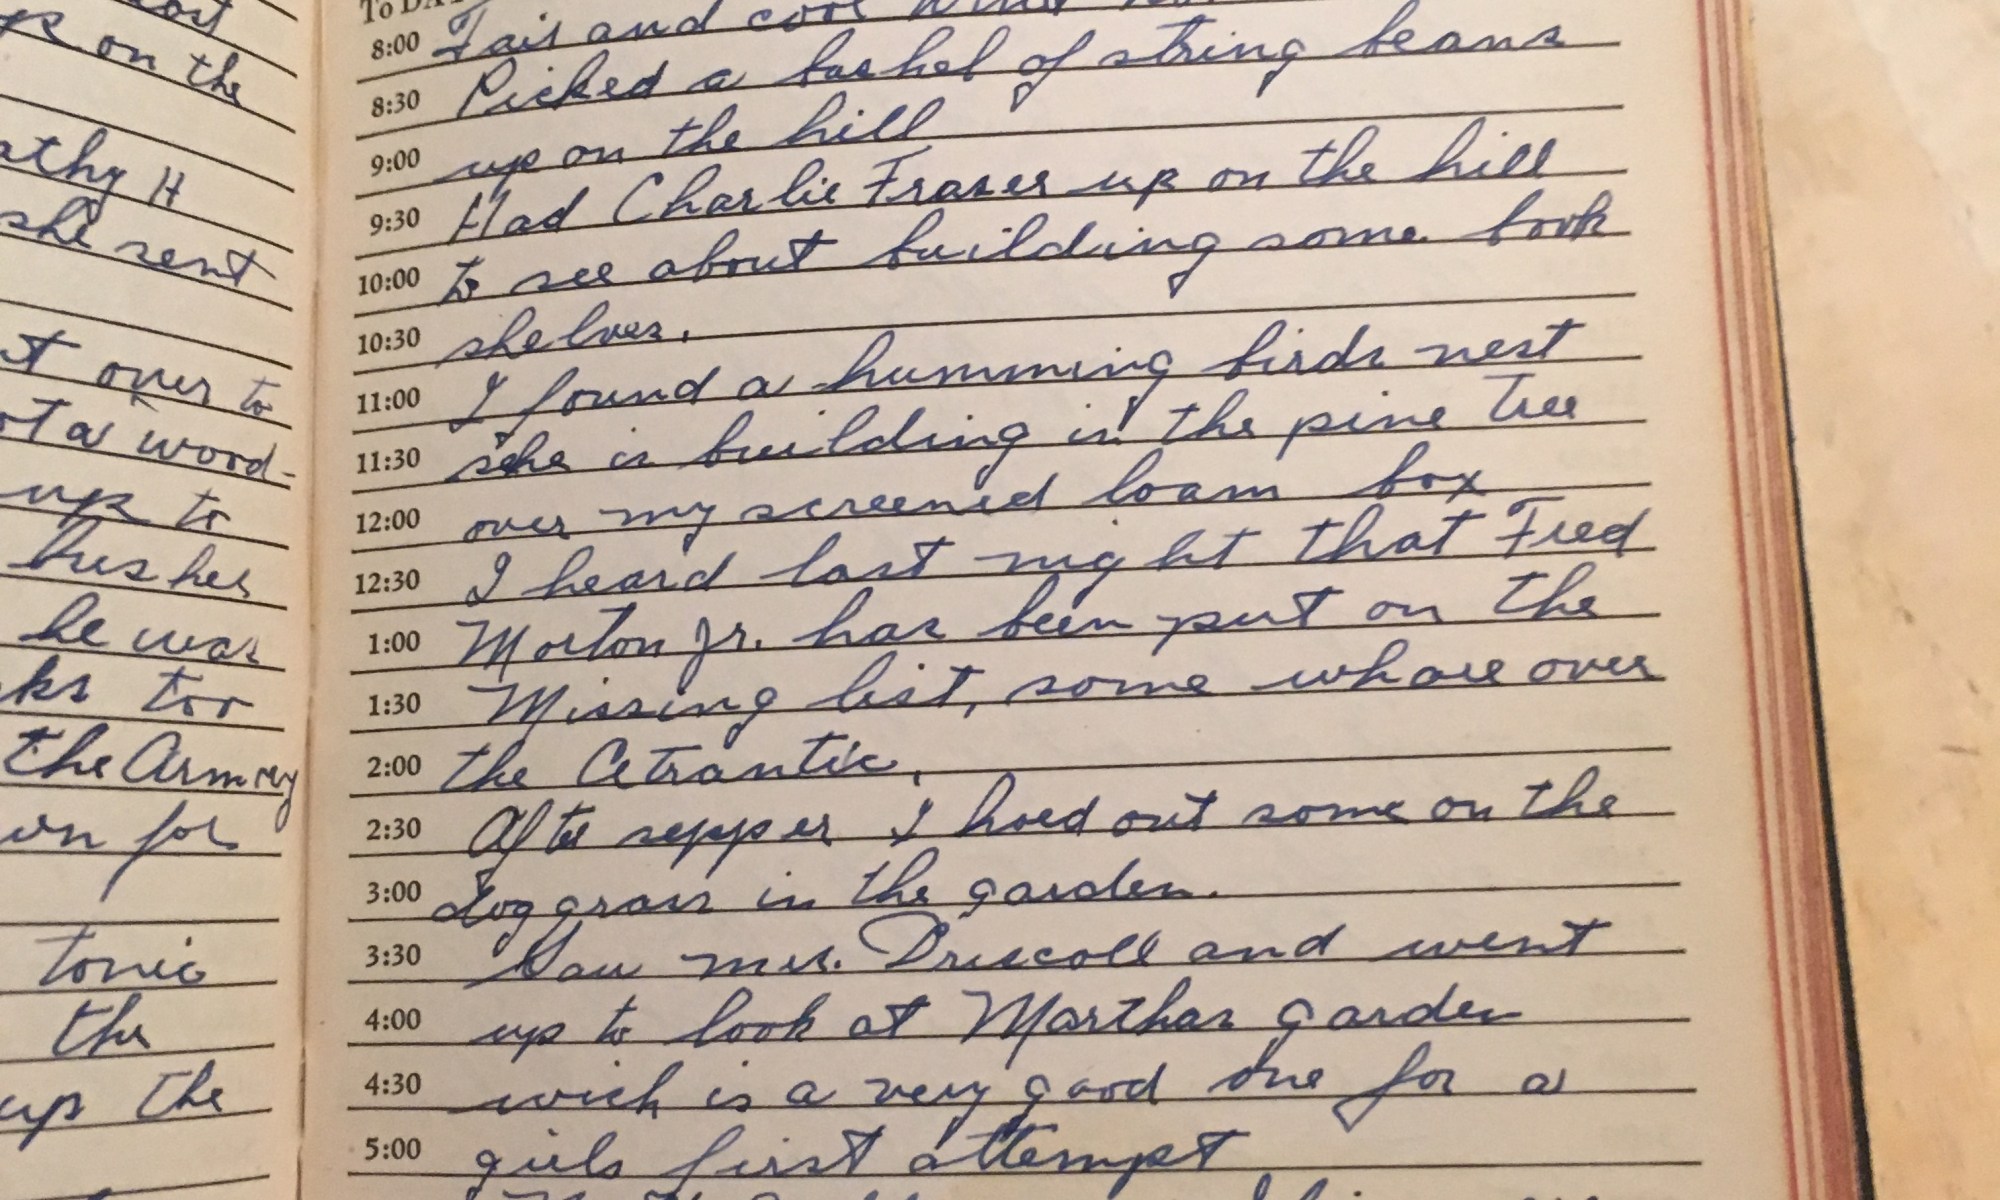 ost
on the
athy H
she sent
st over to
ot a wood-
up to
bushes
he was
ks too
the Armory
wn for
tonic
the
up the
To DA
8:00 Fair and cool wind
8:30 Picked a bushel of string beans
9:00 up on the hill
9:30 Had Charlie Fraser up on the hill
10:00 to see about building some book
10:30 shelves.
11:00 I found a humming birds nest
11:30 she is building in the pine tree
12:00 over my screened loam box
12:30 I heard last night that Fred
1:00 Morton Jr. has been put on the
1:30 Missing list, some whare over
2:00 the Atrantic.
2:30 After sepper I hoed out some on the
3:00 dog grass in the garden.
3:30 Saw mrs. Driscoll and went
4:00 up to look at Marthas garden
4:30 wich is a very good one for a
5:00 girls first attempt